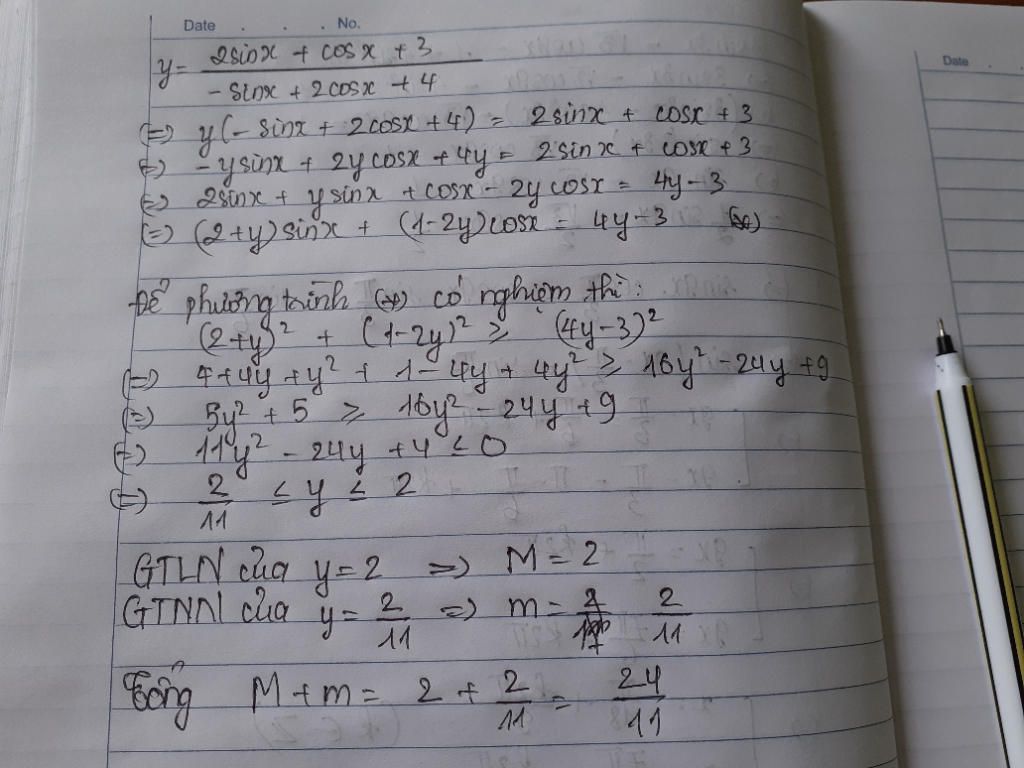 Date . . . No.
y = \frac{2sinx + cosx + 3}{- sinx + 2cosx + 4}
(=) y(- sinx + 2cosx + 4) = 2sinx + cosx + 3
(=) - ysinx + 2ycosx + 4y = 2sinx + cosx + 3
(=) 2sinx + ysinx + cosx - 2ycosx = 4y - 3
(=) (2+y)sinx + (1-2y)cosx = 4y - 3 (*)
Để phương trình (*) có nghiệm thì:
(2+y)² + (1-2y)² ≥ (4y-3)²
(=) 4+4y+y² + 1 - 4y + 4y² ≥ 16y² - 24y + 9
(=) 5y² + 5 ≥ 16y² - 24y + 9
(=) 11y² - 24y + 4 ≤ 0
(=) \frac{2}{11} ≤ y ≤ 2
GTLN của y = 2 => M = 2
GTNN của y = \frac{2}{11} => m = \frac{2}{11}
Tổng M + m = 2 + \frac{2}{11} = \frac{24}{11}
Date . .